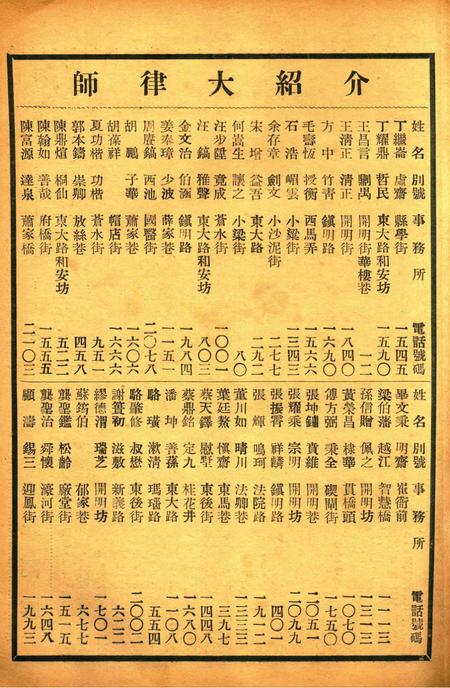 介紹大律師
姓名 別號 事務所 電話號碼
丁繼崙 虛齋 縣學街 一五四五
丁耀鼎 哲民 東大路和安坊 一五九〇
王昌言 剛禺 開明街華樓巷 一二
王清正 清正 開明街 一八四〇
方中 竹青 鎮明路 一六九〇
毛壽恆 授衡 西馬弄 一五六六
石浩 嵋雲 小梁街 一三四三
余存章 劍文 小沙泥街 二七七
宋增 益吾 東大路 二九二
何嵩生 讓之 小梁街 八〇
汪步陞 竟成 蒼水街 一〇〇一
汪鎬 雅聲 東大路和安坊 八〇三
金文治 伯涵 鎮明路 一九八四
姜奉璋 少波 薛家巷
周賡鎬 西池 國醫街 二〇七八
胡鵬 子華 蕭家巷 一六〇六
胡葆祥 帽店街 一六六六
夏功楷 功楷 蒼水街 九五一
郭本鑄 崇卿 放絲巷 四五八
陳鼎煊 桐仙 東大路和安坊 五二二
陳翰如 善哉 府橋街 一五五五
陳富源 達泉 蕭家橋 二一〇三
姓名 別號 事務所 電話號碼
畢文秉 明齋 崔衙前
梁伯藩 越江 智慧橋 一一一三
孫信贈 佩之 開明街 一三一三
黃榮昌 棣華 貫橋頭 一〇七〇
傅方弼 秉全 碶閘街 一七五〇
張坤鏽 寶維 開明巷 二〇五一
張耀乘 宗明 開明坊 二〇九九
張振霄 祥麟 鎮明路 四〇一
張輝 鳴珂 法院路 一九一二
董川如 晴川 法卿巷 一三三三
葉廷鰲 慎齋 東馬巷 三九七
蔡天鐸 慰墅 東後街 一四四八
蔡鼎銘 定九 桂花井 一六八〇
潘坤 善蓀 東大路 一一〇八
駱璜 漱清 瑪瑙路 五五四
駱肇修 叔懋 東後街 二〇〇二
謝簋初 滋敷 新義路 六二二
繆德渭 瑞芝 開明坊 一七〇一
蘇筠伯 郁家巷 六七七
龔聖鑑 松齡 廠堂街 一五一五
龔聖治 舜懷 濠河街 一六四八
顧濤 錫三 迎鳳街 一九九三